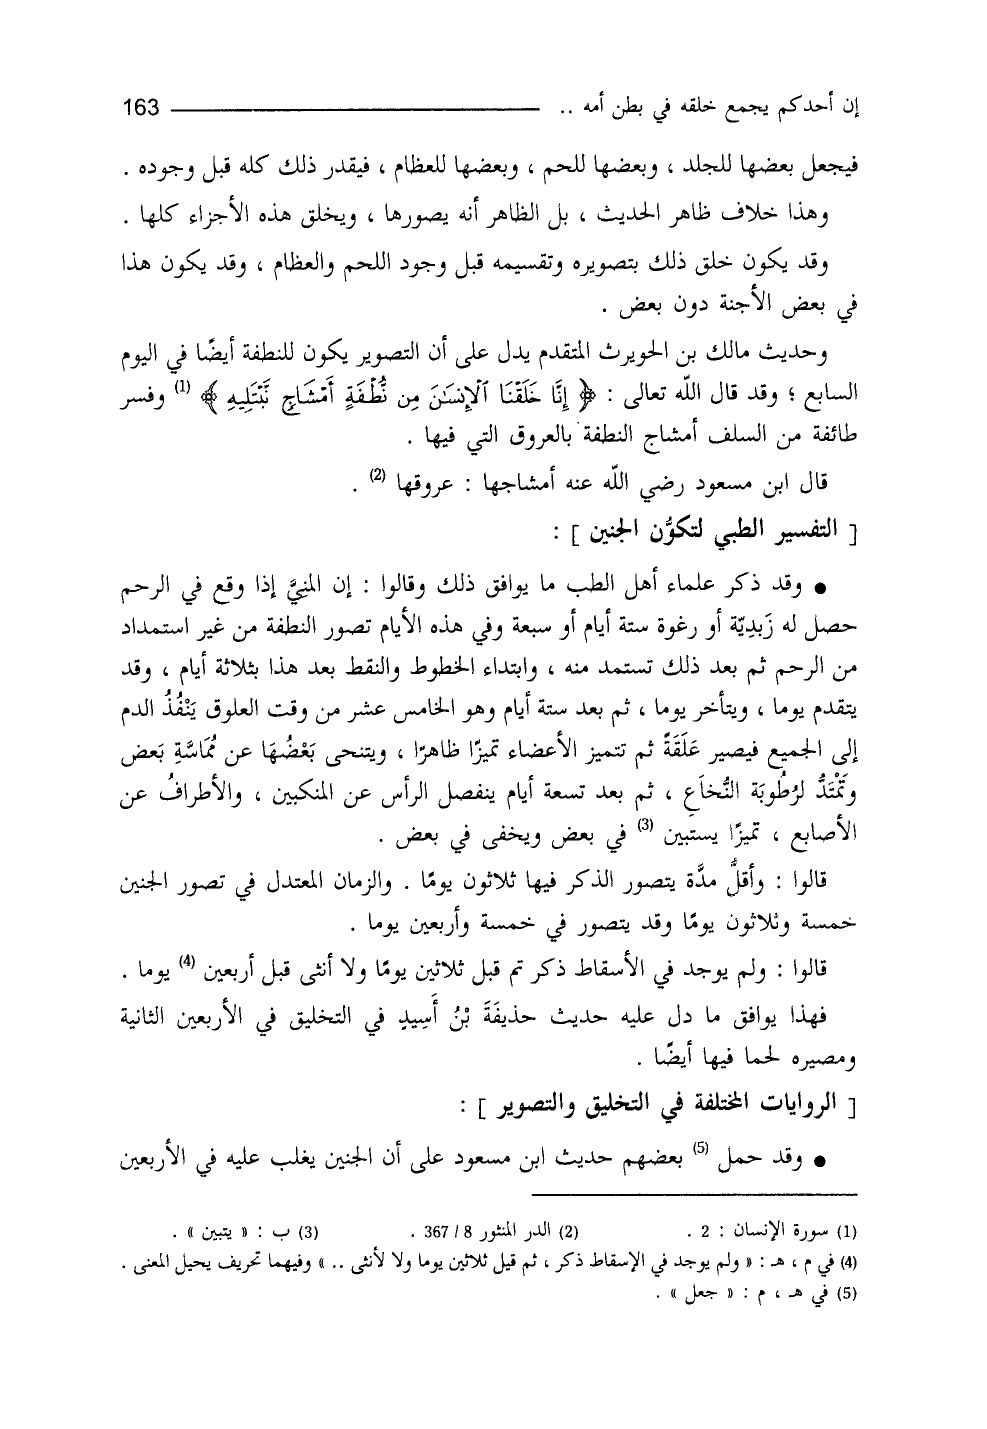 إن أحدكم يجمع خلقه في بطن أمه .. 163
فيجعل بعضها للجلد ، وبعضها للحم ، وبعضها للعظام ، فيقدر ذلك كله قبل وجوده .
وهذا خلاف ظاهر الحديث ، بل الظاهر أنه يصورها ، ويخلق هذه الأجزاء كلها .
وقد يكون خلق ذلك بتصويره وتقسيمه قبل وجود اللحم والعظام ، وقد يكون هذا
في بعض الأجنة دون بعض .
وحديث مالك بن الحويرث المتقدم يدل على أن التصوير يكون للنطفة أيضًا في اليوم
السابع ؛ وقد قال الله تعالى : ﴿ إِنَّا خَلَقْنَا ٱلْإِنسَٰنَ مِن نُّطْفَةٍ أَمْشَاجٍ نَّبْتَلِيهِ ﴾ (1) وفسر
طائفة من السلف أمشاج النطفة بالعروق التي فيها .
قال ابن مسعود رضي الله عنه أمشاجها : عروقها (2) .
[ التفسير الطبي لتكوُّن الجنين ] :
● وقد ذكر علماء أهل الطب ما يوافق ذلك وقالوا : إن المنيَّ إذا وقع في الرحم
حصل له زَبديّة أو رغوة ستة أيام أو سبعة وفي هذه الأيام تصور النطفة من غير استمداد
من الرحم ثم بعد ذلك تستمد منه ، وابتداء الخطوط والنقط بعد هذا بثلاثة أيام ، وقد
يتقدم يوما ، ويتأخر يوما ، ثم بعد ستة أيام وهو الخامس عشر من وقت العلوق يَنْفُذُ الدم
إلى الجميع فيصير عَلَقَةً ثم تتميز الأعضاء تميزًا ظاهرًا ، ويتنحى بَعْضُهَا عن مُمَاسَّةِ بَعض
وتَمْتَدُّ لرُطُوبَة النُّخاَعِ ، ثم بعد تسعة أيام ينفصل الرأس عن المنكبين ، والأطرافُ عن
الأصابع ، تميزًا يستبين (3) في بعض ويخفى في بعض .
قالوا : وأقلُّ مدَّة يتصور الذكر فيها ثلاثون يومًا . والزمان المعتدل في تصور الجنين
خمسة وثلاثون يومًا وقد يتصور في خمسة وأربعين يوما .
قالوا : ولم يوجد في الأسقاط ذكر تم قبل ثلاثين يومًا ولا أنثى قبل أربعين (4) يوما .
فهذا يوافق ما دل عليه حديث حذيفَةَ بْنُ أَسِيدٍ في التخليق في الأربعين الثانية
ومصيره لحما فيها أيضًا .
[ الروايات المختلفة في التخليق والتصوير ] :
● وقد حمل (5) بعضهم حديث ابن مسعود على أن الجنين يغلب عليه في الأربعين
(1) سورة الإنسان : 2 . (2) الدر المنثور 8 / 367 . (3) ب : « يتبين » .
(4) في م ، هـ : « ولم يوجد في الإسقاط ذكر ، ثم قيل ثلاثين يوما ولا لأنثى .. » وفيهما تحريف يحيل المعنى .
(5) في هـ ، م : « جعل » .